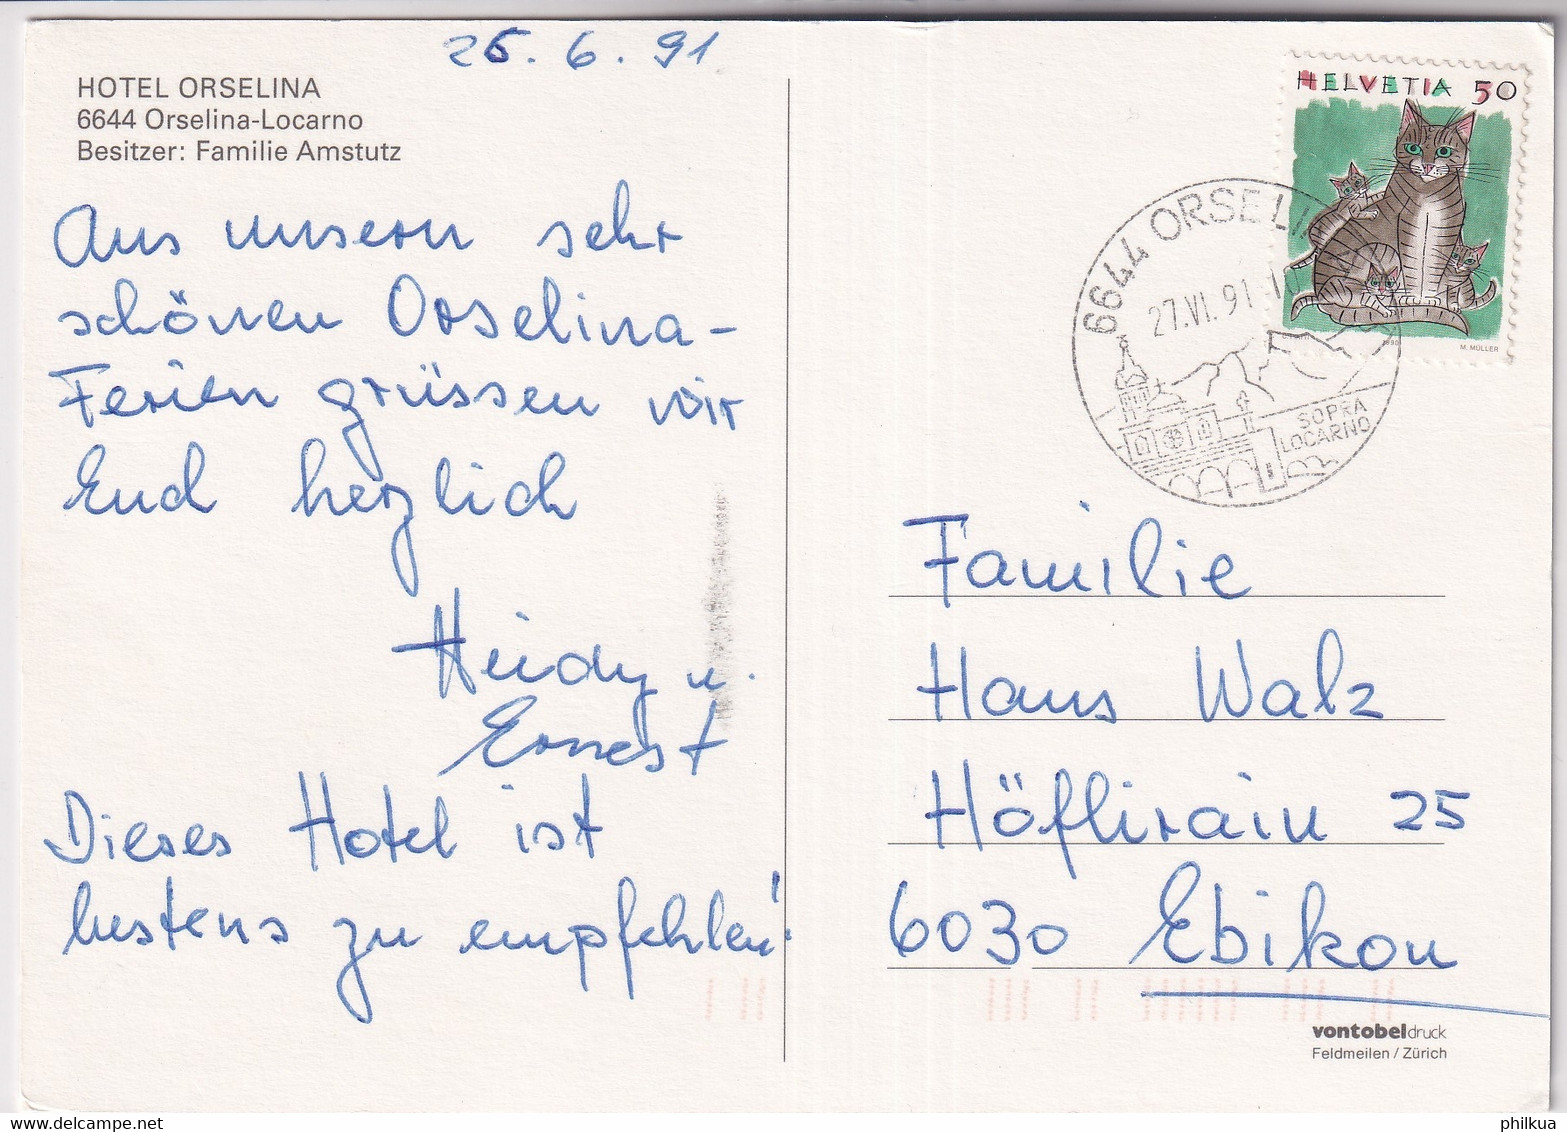 25. 6. 91
HOTEL ORSELINA
6644 Orselina-Locarno
Besitzer: Familie Amstutz
Aus unsern sehr
schönen Orselina-
Ferien grüssen wir
Euch herzlich
Heidy u.
Ernest
Dieses Hotel ist
bestens zu empfehlen!
HELVETIA 50
1990
M. MÜLLER
6644 ORSELI
27.VI.91
SOPRA
LOCARNO
Familie
Hans Walz
Höflirain 25
6030 Ebikon
vontobeldruck
Feldmeilen / Zürich
philkua